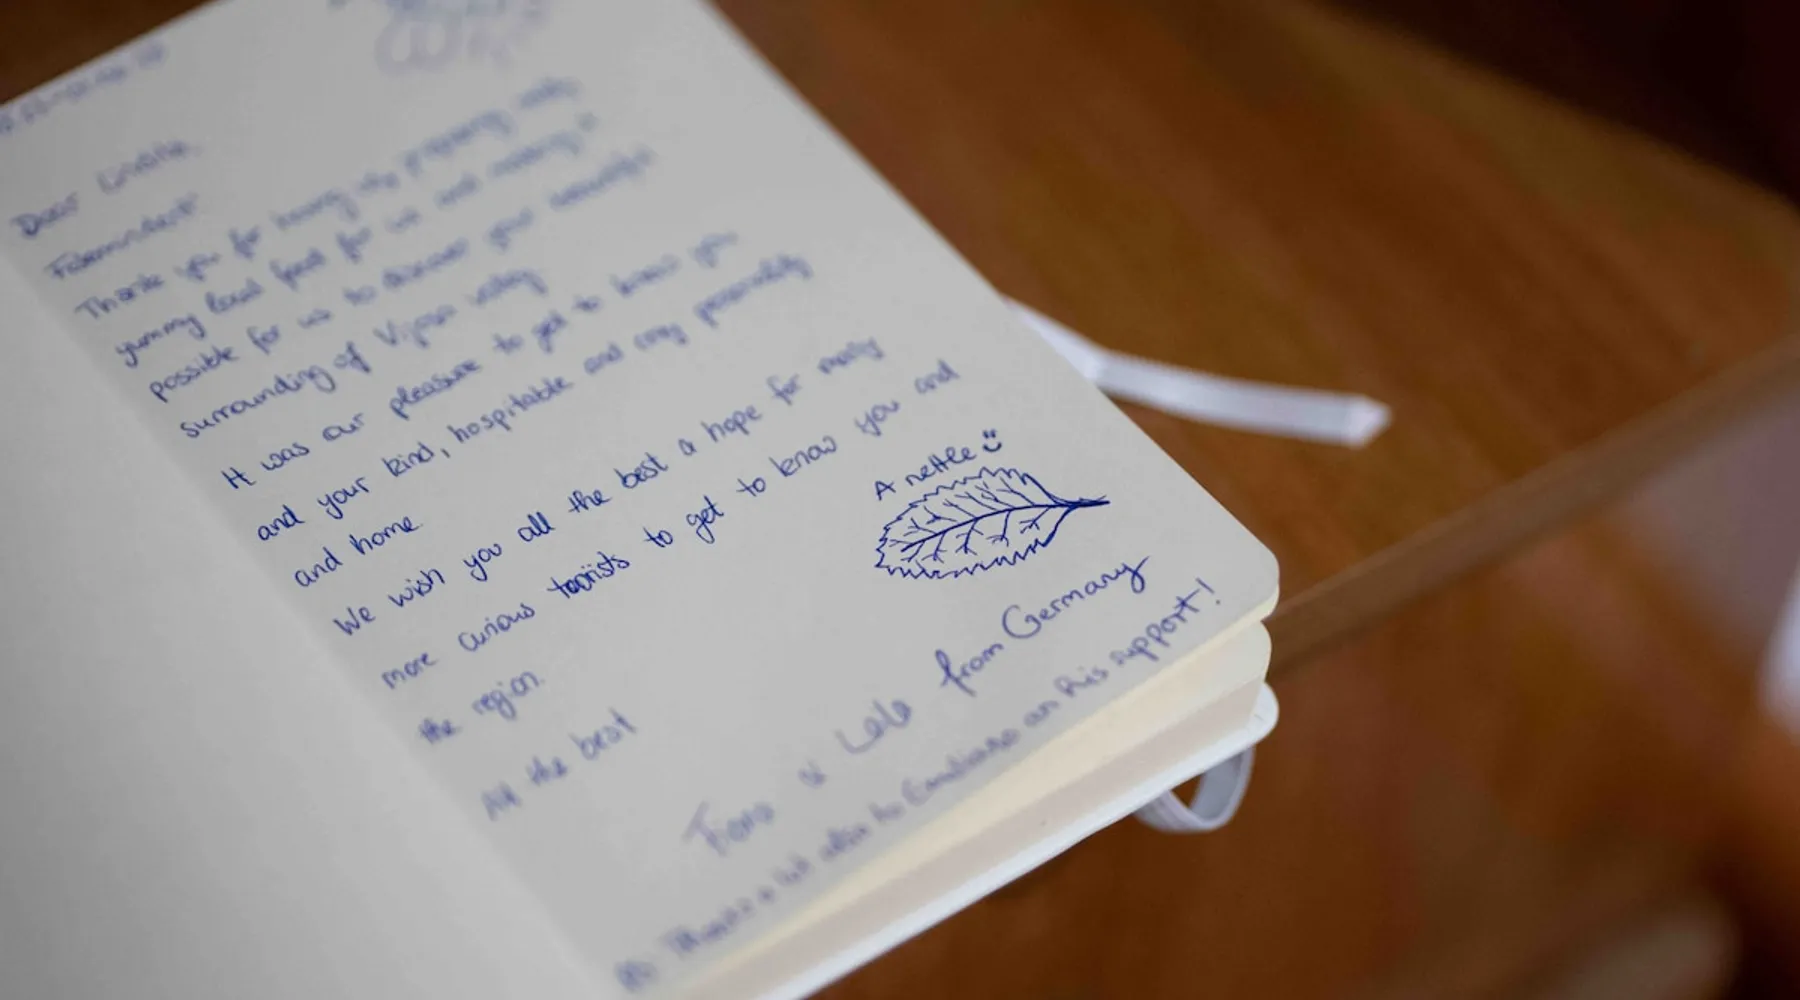 Dear
Thank you for having us, preparing
yummy local food for us and making it
possible for us to discover your beautiful
surrounding of Vjosa valley
It was our pleasure to get to know you
and your kind, hospitable and cozy personality
and home.
We wish you all the best & hope for many
more curious tourists to get to know you and
the region.
A nettle
All the best
from Germany
PS Thanks a lot also to Emiliano an his support!